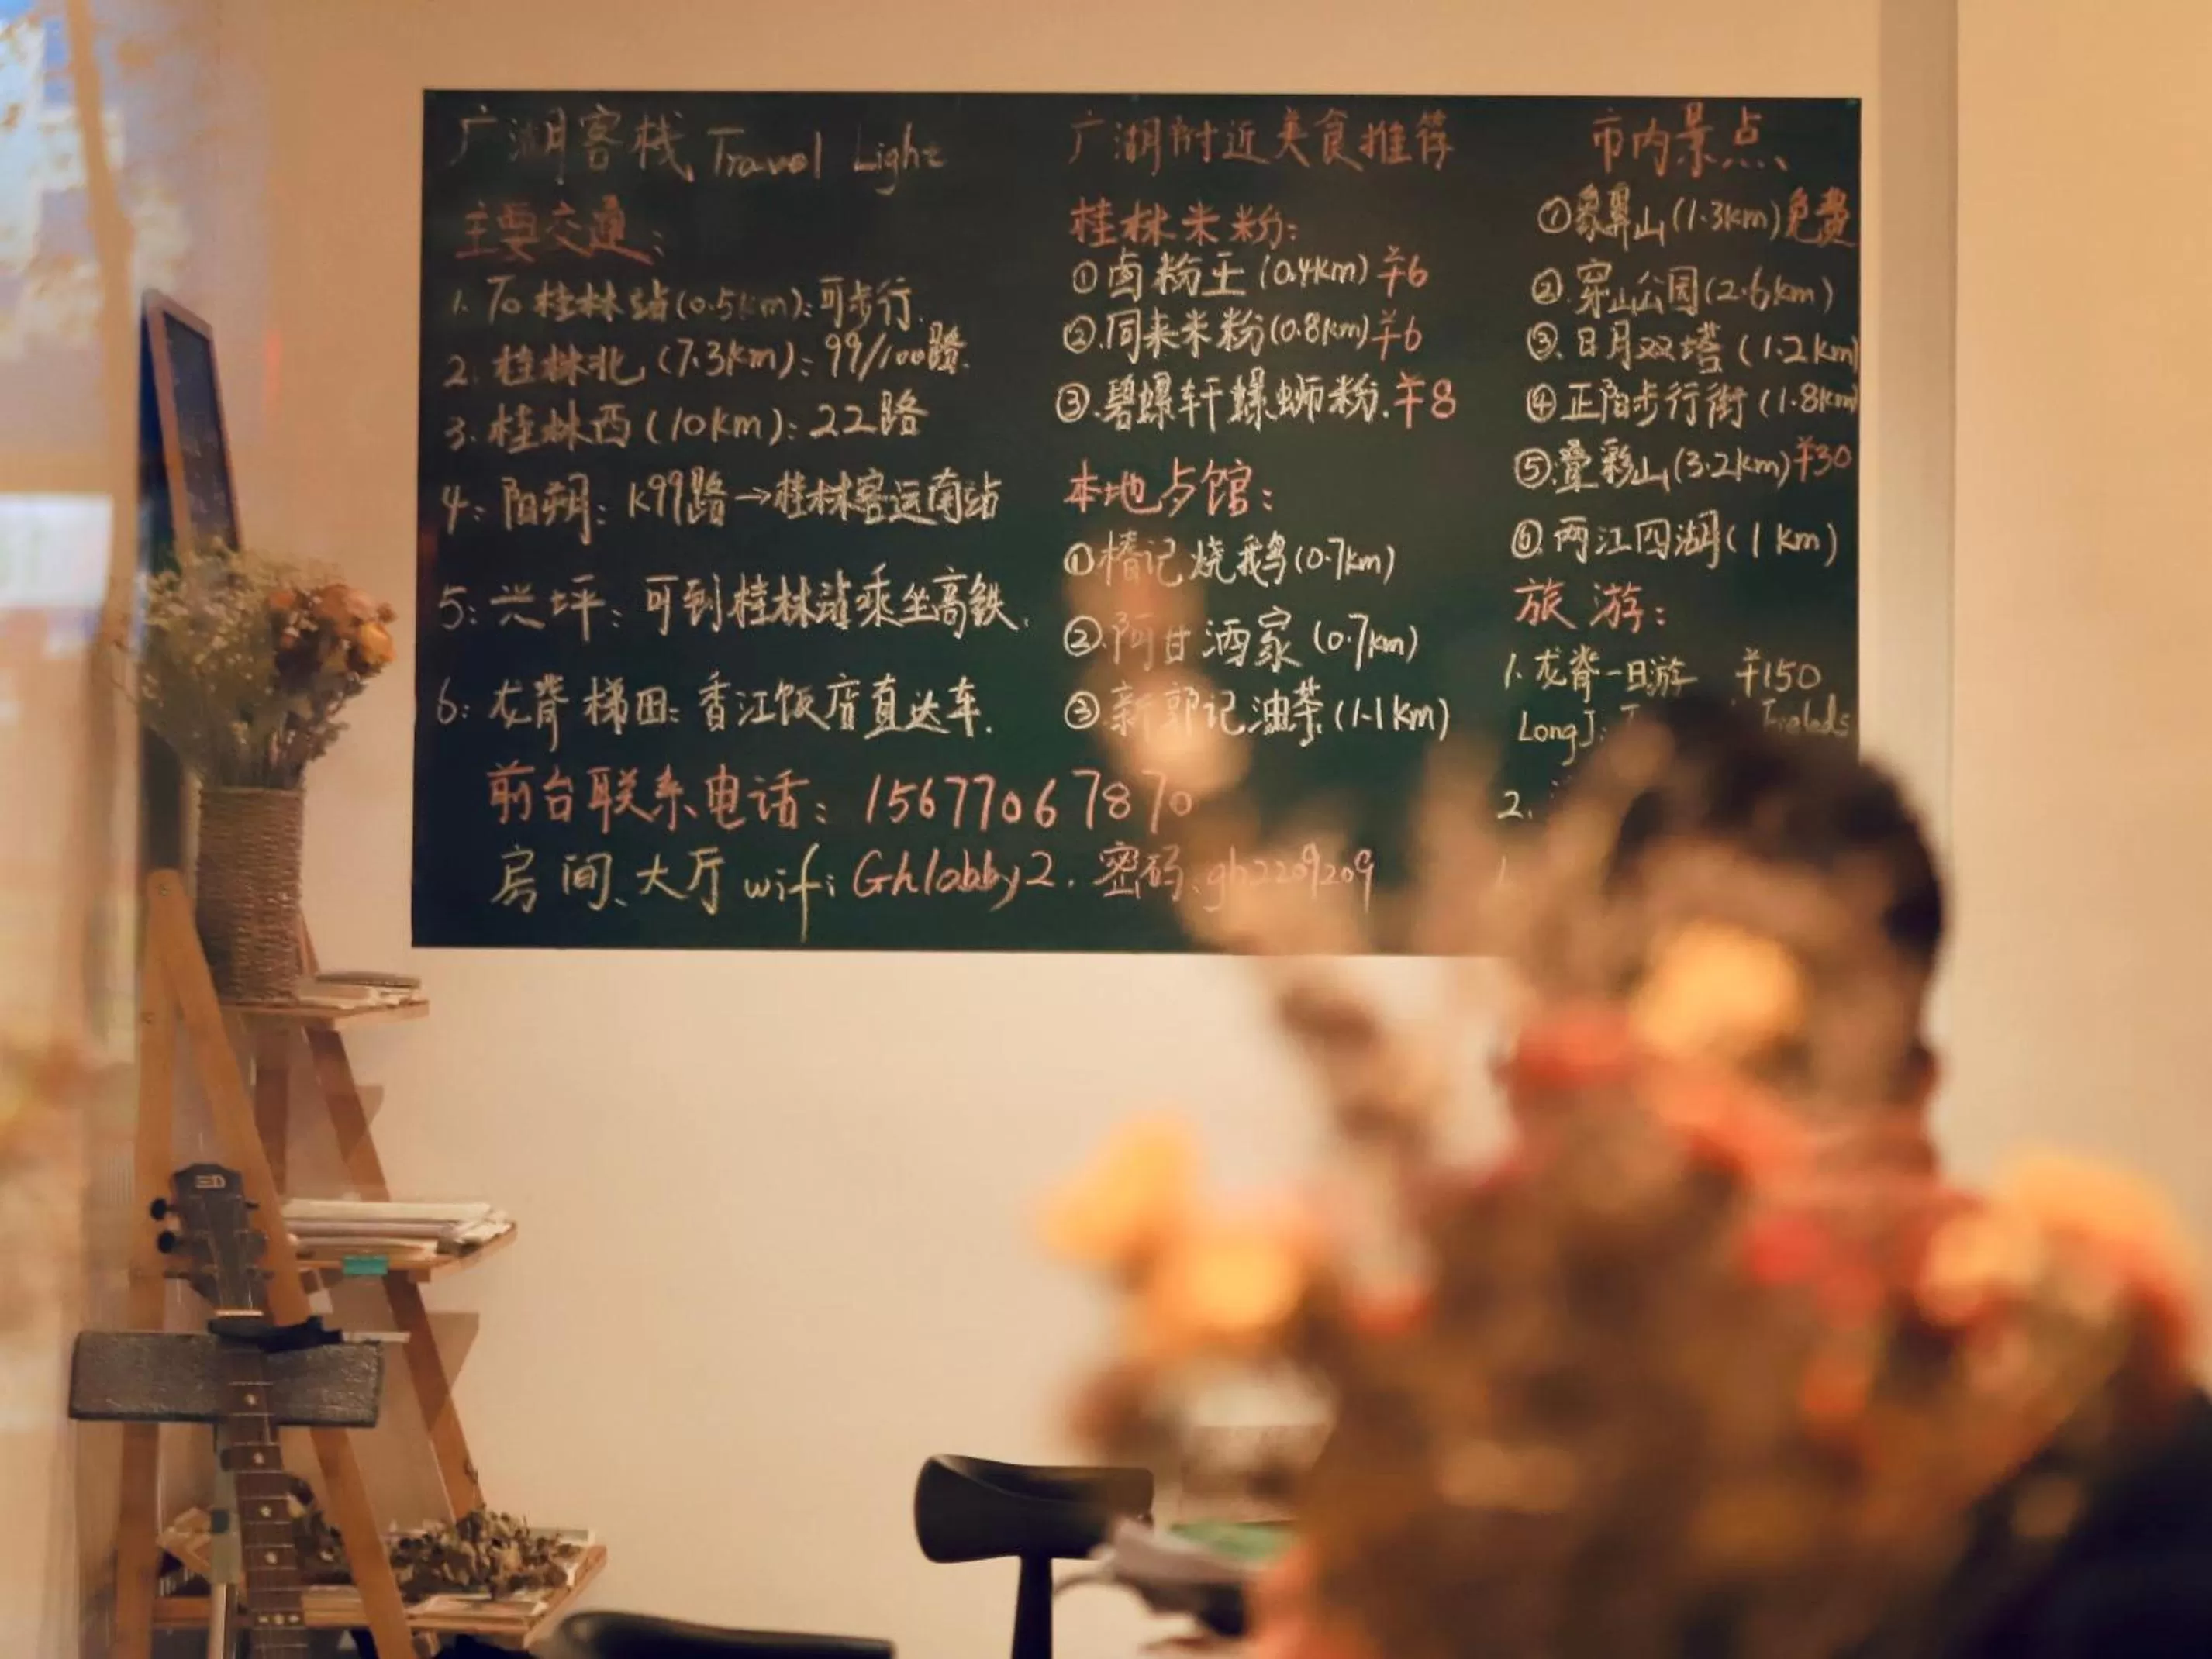 广湖客栈 Travel Light
主要交通:
1. To 桂林站(0.5km):可步行.
2. 桂林北(7.3km):99/100路.
3. 桂林西(10km):22路
4: 阳朔: K99路→桂林客运南站
5: 兴坪: 可到桂林站乘坐高铁.
6: 龙脊梯田: 香江饭店直达车.
前台联系电话: 15677067870
房间、大厅 wifi Ghlobby2. 密码、gh2209209
广湖附近美食推荐
桂林米粉:
①卤粉王(0.4km)¥6
②.同来米粉(0.8km)¥6
③.碧螺轩螺蛳粉.¥8
本地歺馆:
①椿记烧鹅(0.7km)
②.阿甘酒家(0.7km)
③.新郭记油茶(1.1km)
市内景点、
①象鼻山(1.3km)免费
②.穿山公园(2.6km)
③.日月双塔(1.2km)
④正阳步行街(1.8km)
⑤.叠彩山(3.2km)¥30
⑥.两江四湖(1km)
旅游:
1.龙脊一日游 ¥150
2.